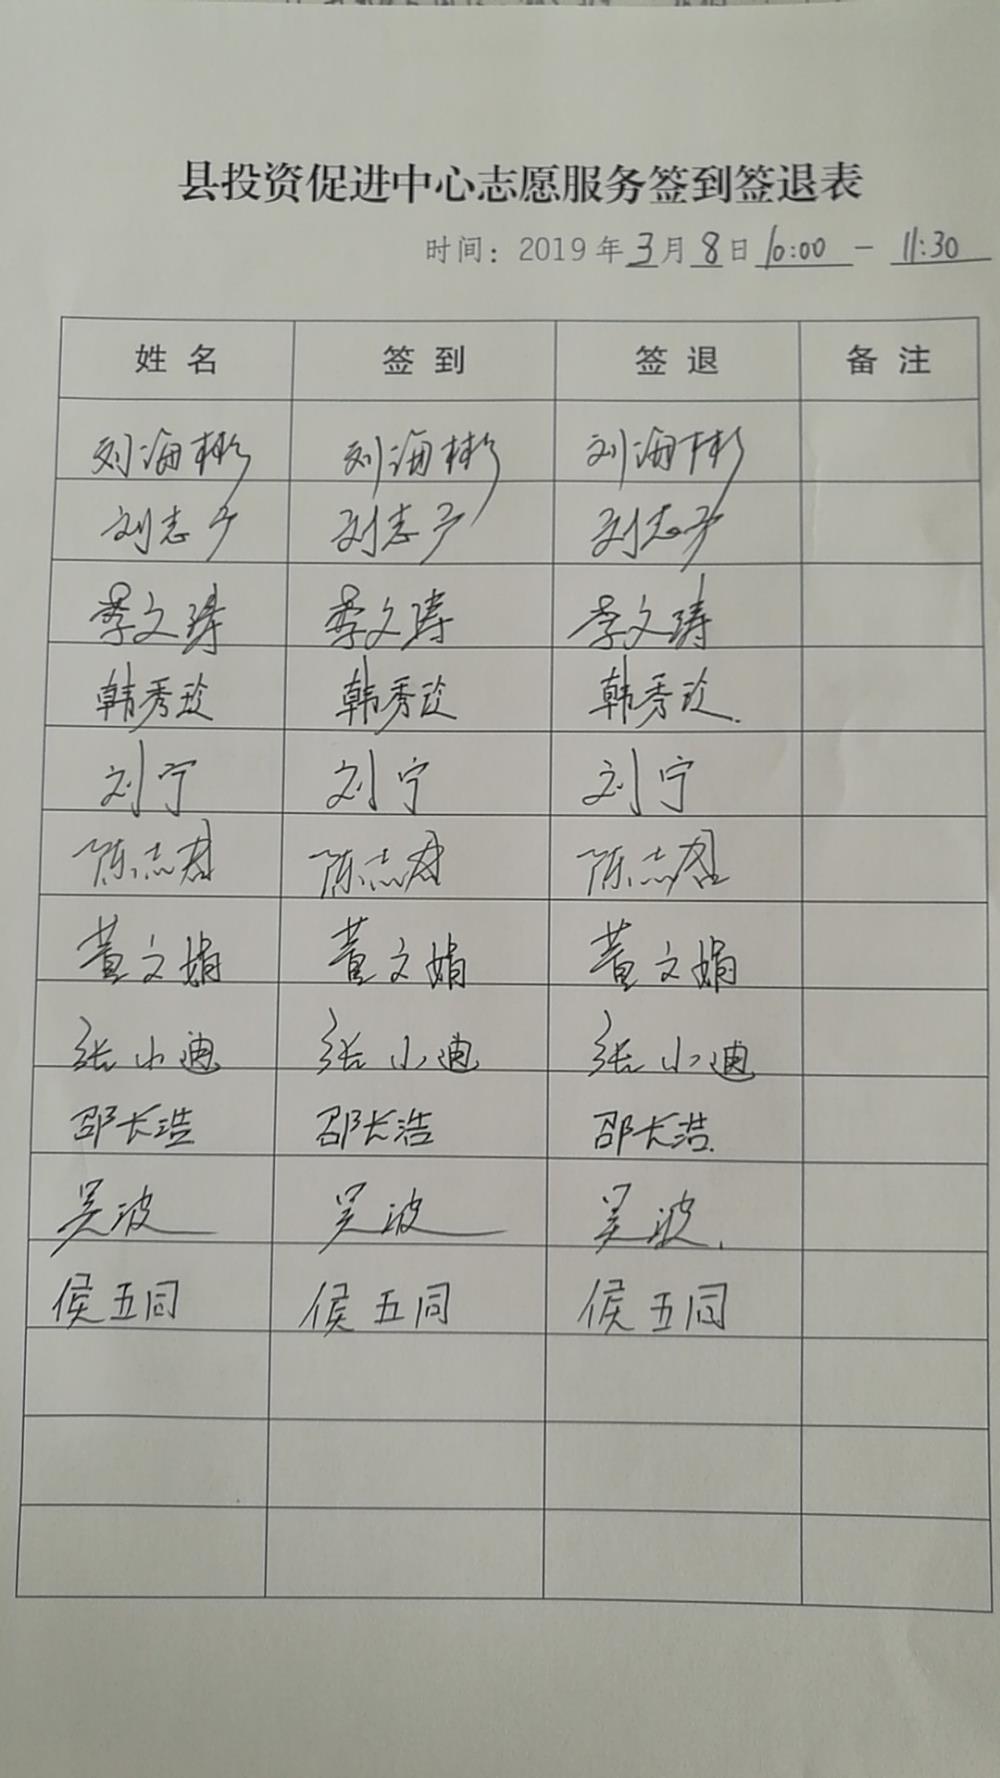 县投资促进中心志愿服务签到签退表
时间：2019年3月8日10:00－11:30
姓名 签到 签退 备注
刘海彬 刘海彬 刘海彬
刘志 刘志 刘志
季文涛 季文涛 季文涛
韩秀 韩秀 韩秀
刘宁 刘宁 刘宁
陈志君 陈志君 陈志君
董文娟 董文娟 董文娟
张小迪 张小迪 张小迪
邵长浩 邵长浩 邵长浩
吴波 吴波 吴波
侯五同 侯五同 侯五同